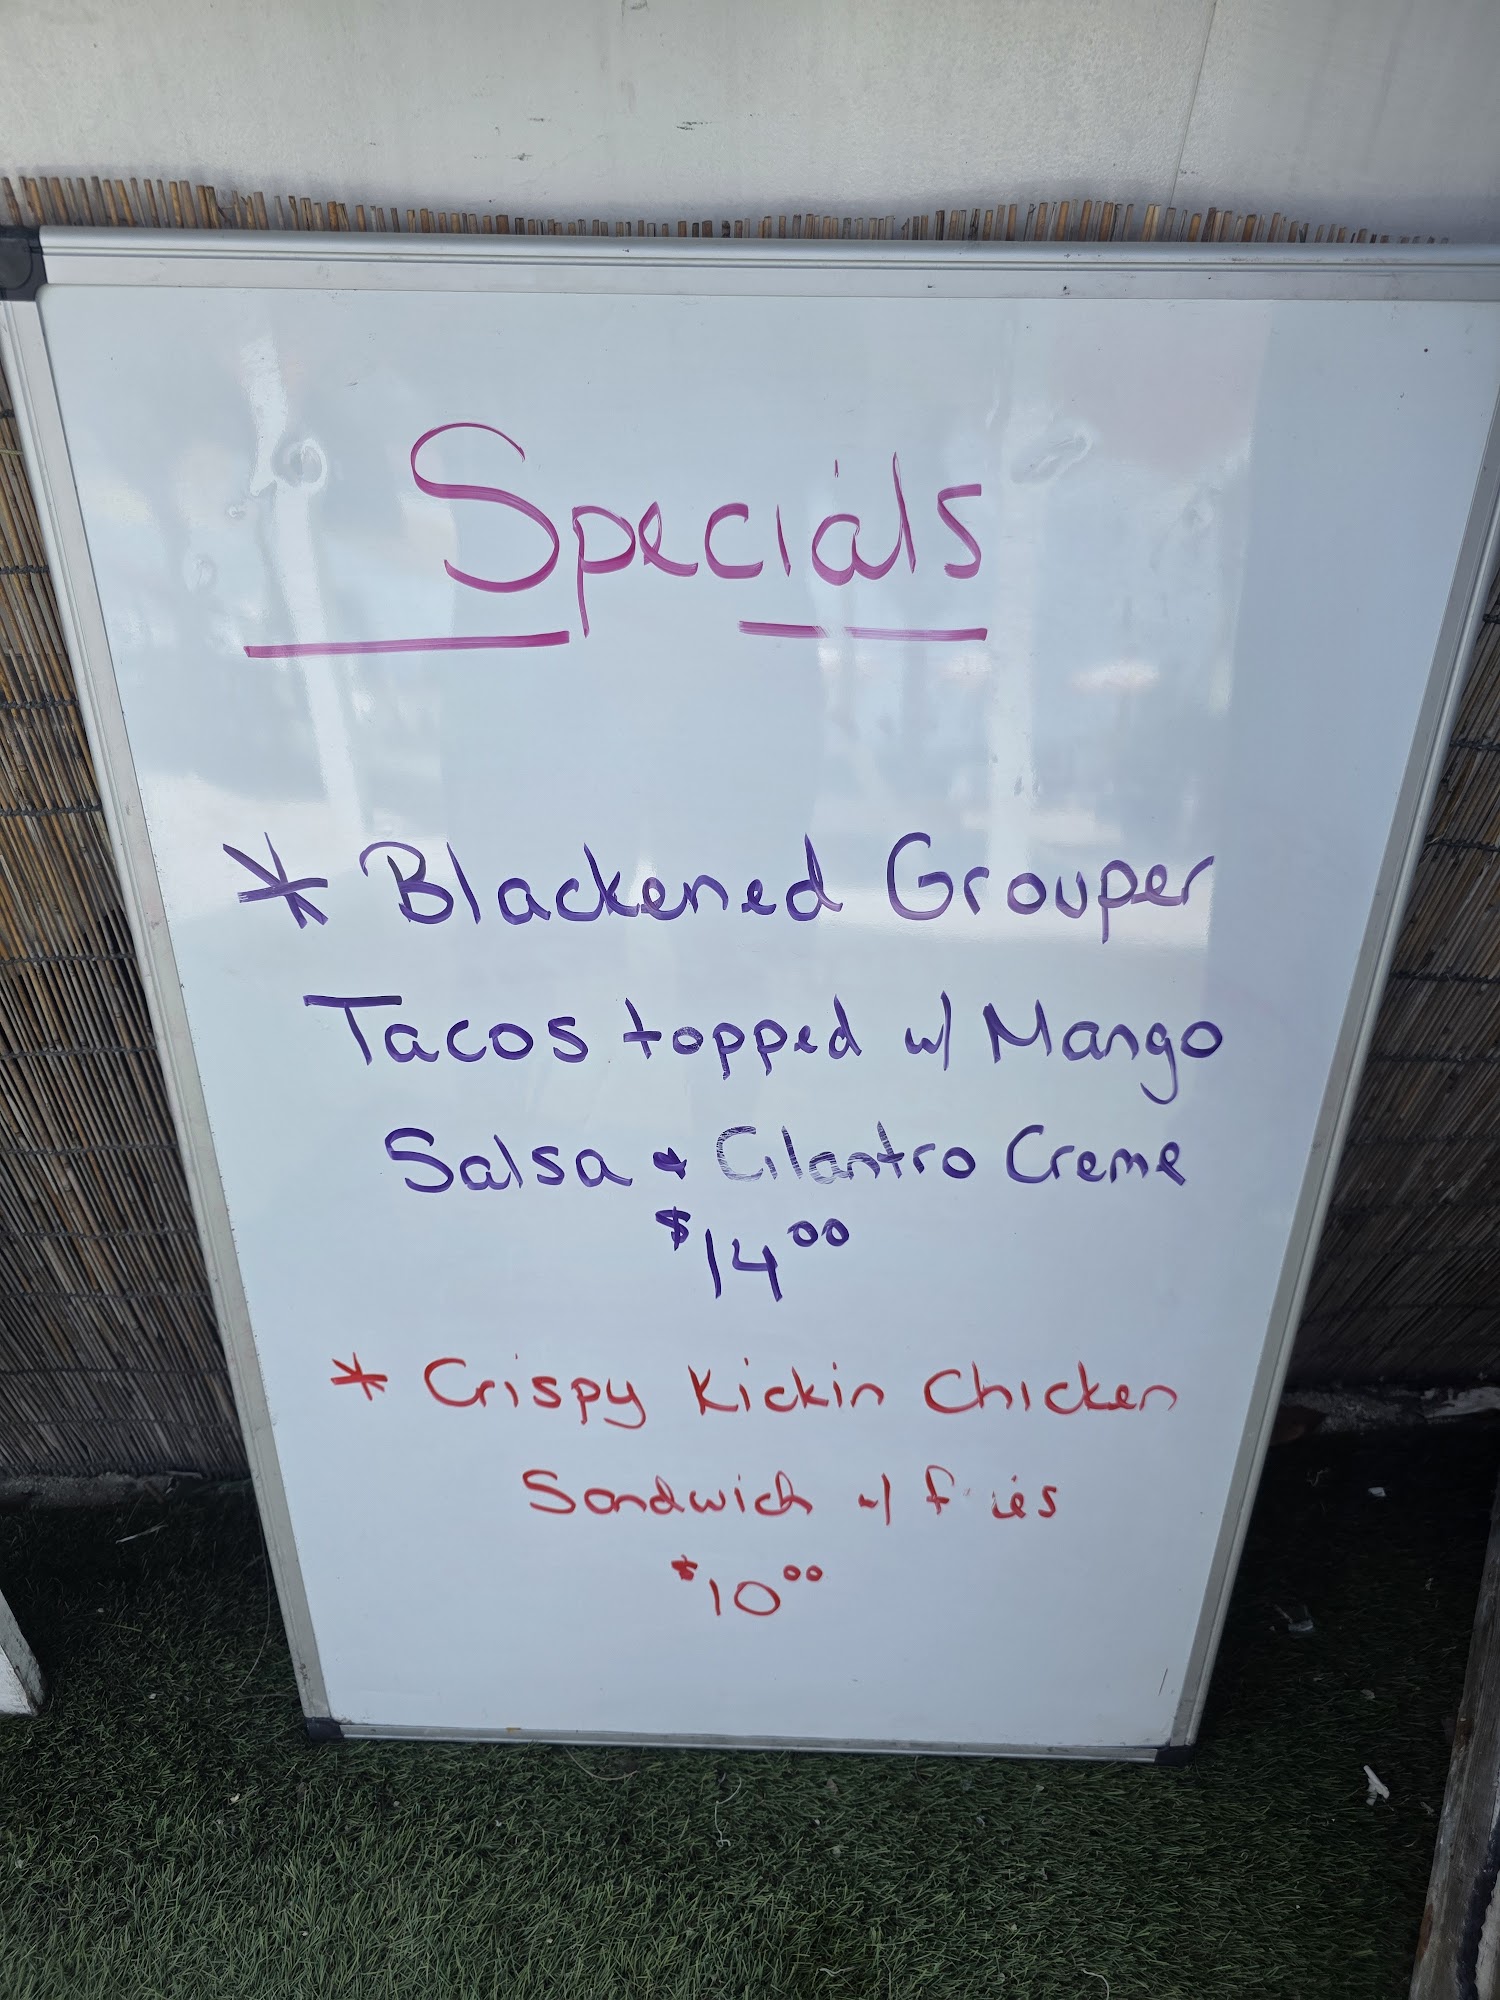 Specials
* Blackened Grouper
Tacos topped w/ Mango
Salsa & Cilantro Creme
$14.00
* Crispy Kickin Chicken
Sandwich w/ fries
$10.00